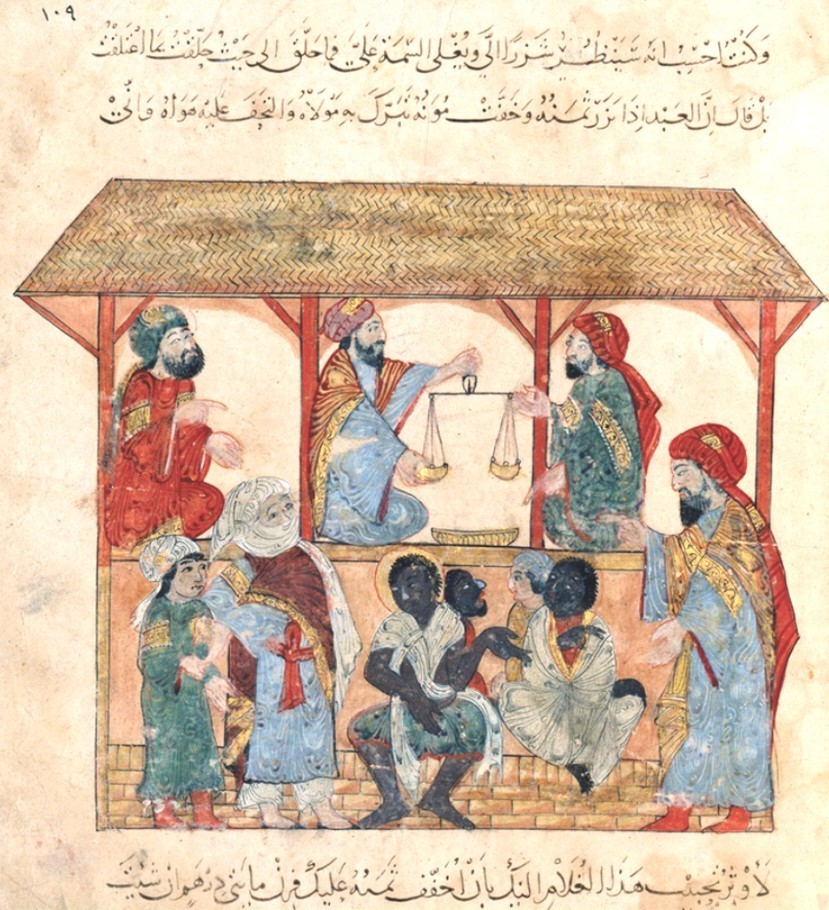 ١٠٩
وكنت احسب انه سينظر شزرا الي ويغلي السمة علي فما حلق الى حيث حلقت اعتلقت
بل قال ان العبد اذا نزر ثمنه وخفت مونه تبرك به مولاه والتحف عليه هواه واني
لاوثر تحبيب هذا الغلام اليك بان اخفف ثمنه عليك فزن مايتي درهم ان شيت